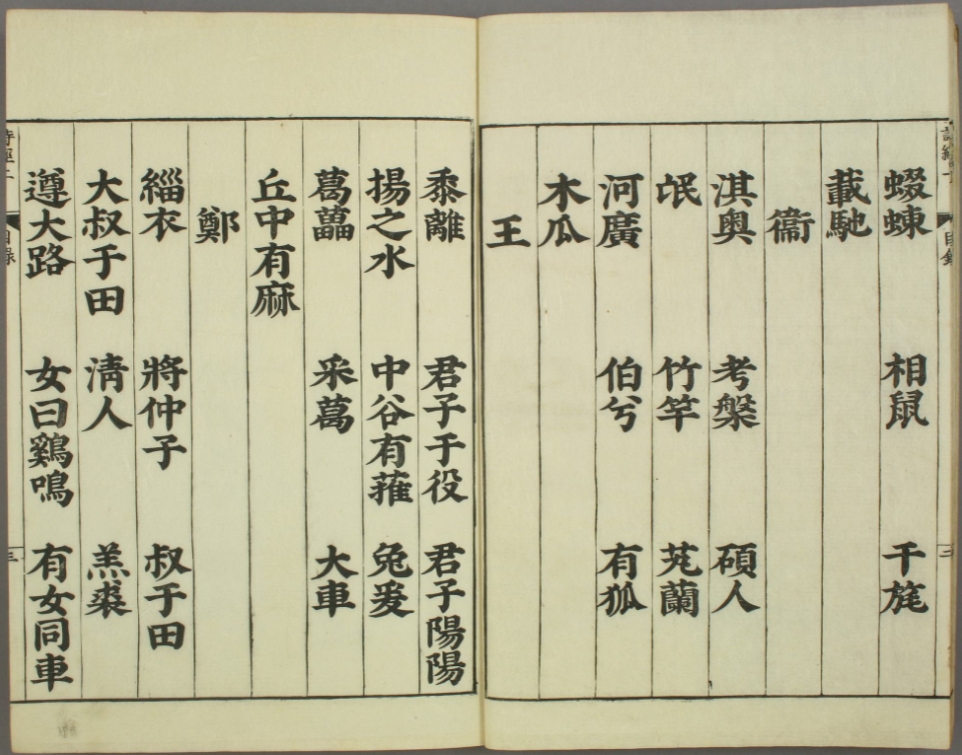 蝃蝀 相鼠 干旄
載馳
衞
淇奥 考槃 碩人
氓 竹竿 芄蘭
河廣 伯兮 有狐
木瓜
王
黍離 君子于役 君子陽陽
揚之水 中谷有蓷 兔爰
葛藟 采葛 大車
丘中有麻
鄭
緇衣 將仲子 叔于田
大叔于田 淸人 羔裘
遵大路 女曰鷄鳴 有女同車
目錄
三